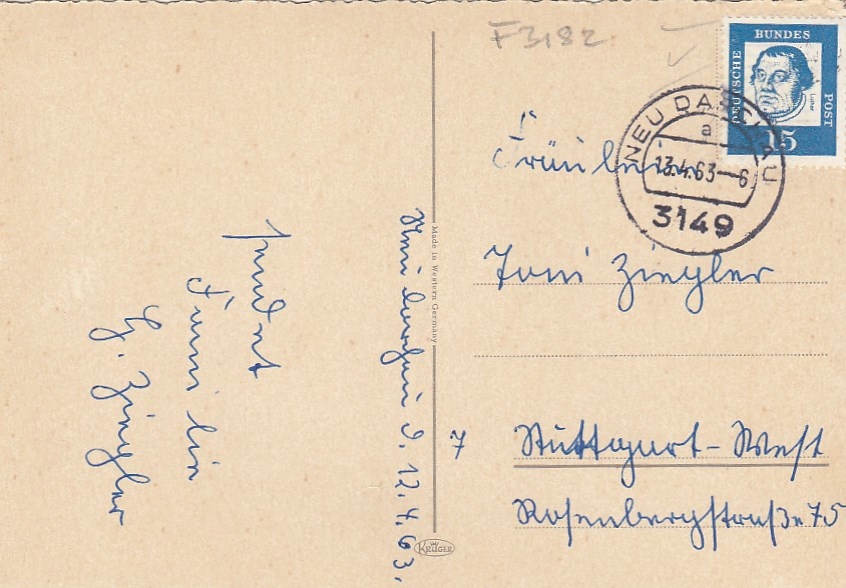 F3182.
DEUTSCHE
BUNDES
POST
Luther
15
NEU DARCHAU
a
13.4.63--6
3149
Fräulein
Toni Ziegler
7 Stuttgart-West
Rosenbergstraße 75
Made in Western Germany
KRÜGER
Neu Darchau d. 12.4.63.
sendet
Familie
G. Ziegler